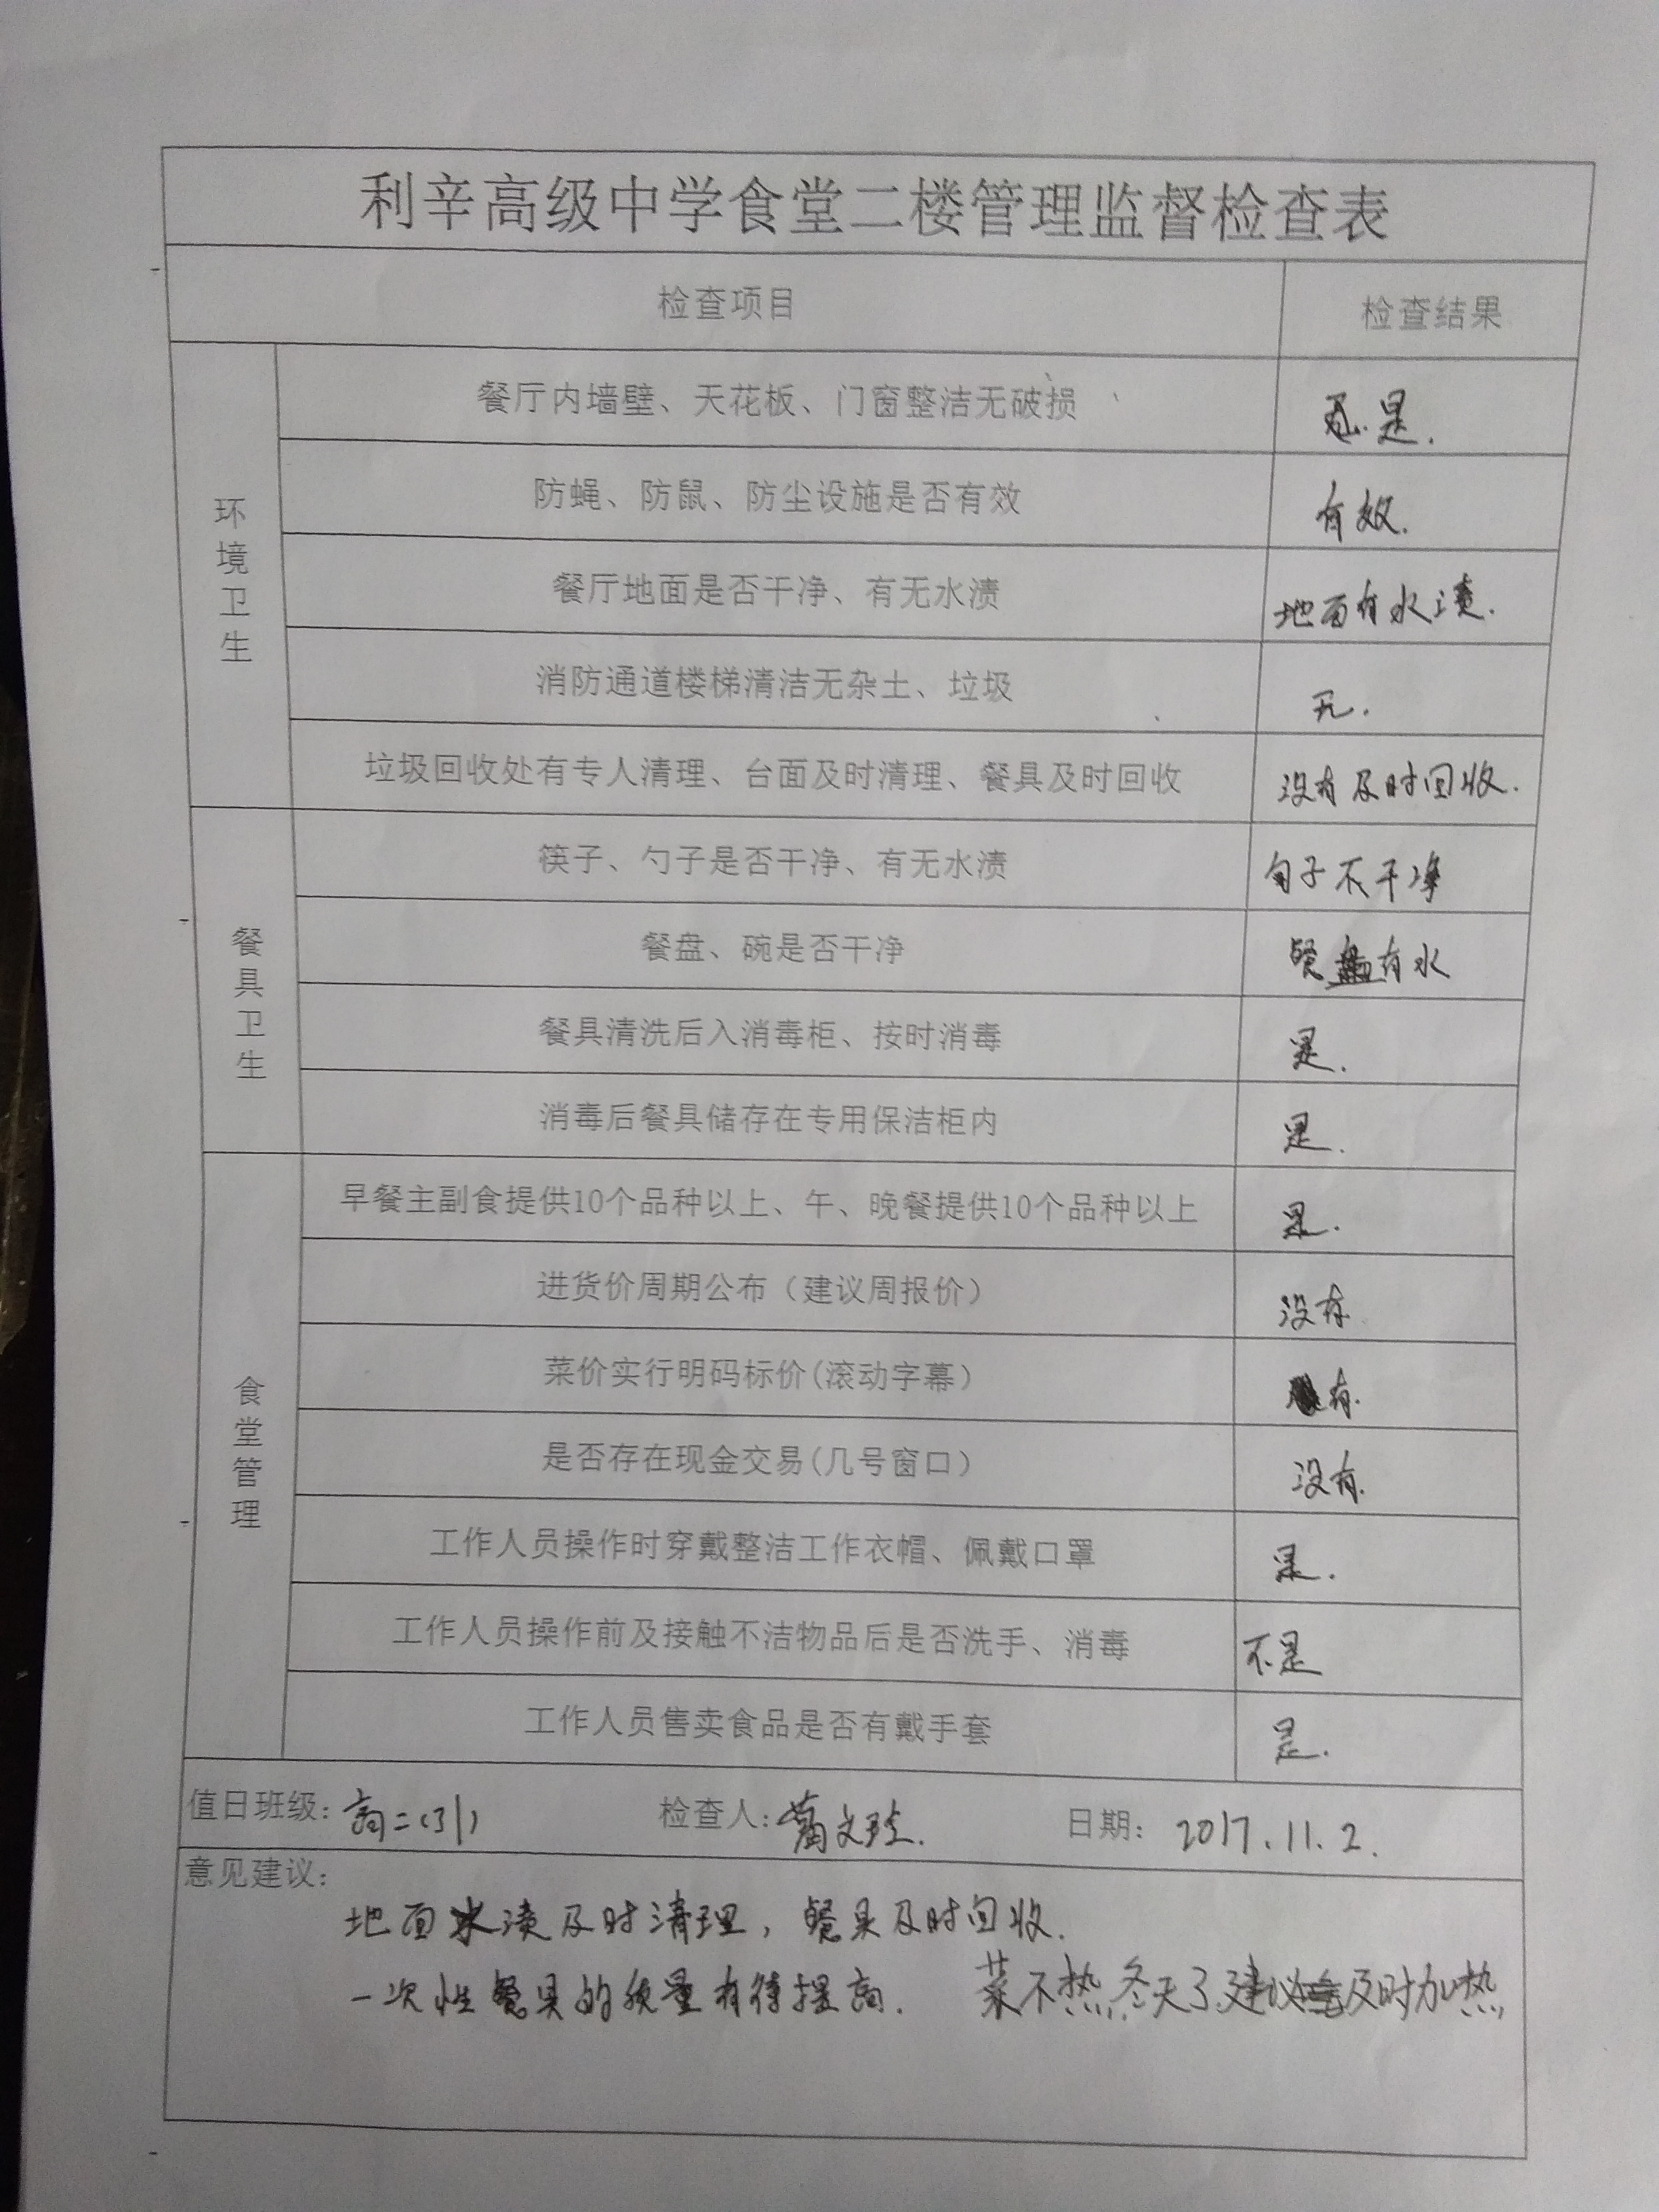 利辛高级中学食堂二楼管理监督检查表
检查项目 检查结果
环境卫生
餐厅内墙壁、天花板、门窗整洁无破损 是.
防蝇、防鼠、防尘设施是否有效 有效.
餐厅地面是否干净、有无水渍 地面有水渍.
消防通道楼梯清洁无杂土、垃圾 无.
垃圾回收处有专人清理、台面及时清理、餐具及时回收 没有及时回收.
餐具卫生
筷子、勺子是否干净、有无水渍 勺子不干净
餐盘、碗是否干净 餐盘有水
餐具清洗后入消毒柜、按时消毒 是.
消毒后餐具储存在专用保洁柜内 是.
食堂管理
早餐主副食提供10个品种以上、午、晚餐提供10个品种以上 是.
进货价周期公布（建议周报价） 没有
菜价实行明码标价(滚动字幕） 有.
是否存在现金交易(几号窗口） 没有.
工作人员操作时穿戴整洁工作衣帽、佩戴口罩 是.
工作人员操作前及接触不洁物品后是否洗手、消毒 不是
工作人员售卖食品是否有戴手套 是.
值日班级: 高二(31) 检查人: 文 日期: 2017.11.2.
意见建议:
地面水渍及时清理，餐具及时回收.
一次性餐具的质量有待提高. 菜不热,冬天了建议及时加热